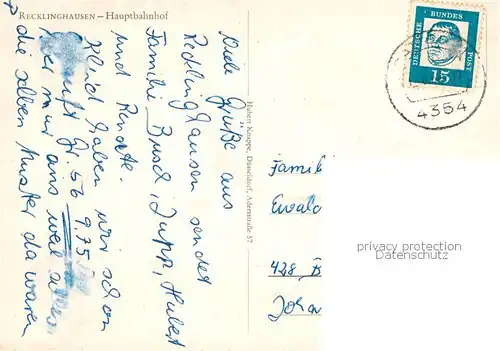 RECKLINGHAUSEN – Hauptbahnhof
Viele Grüße aus
Recklinghausen sendet
Familie Busch, Jupp, Hubert
und Renate.
Kleid haben wir schon
gekauft Gr. 56 9.75
aus weil
die selben Muster da waren
Hubert Knuppe, Düsseldorf, Adersstraße 57
DEUTSCHE
BUNDES
POST
15
4354
Famil
Ewald
428 B
Joha
privacy protection